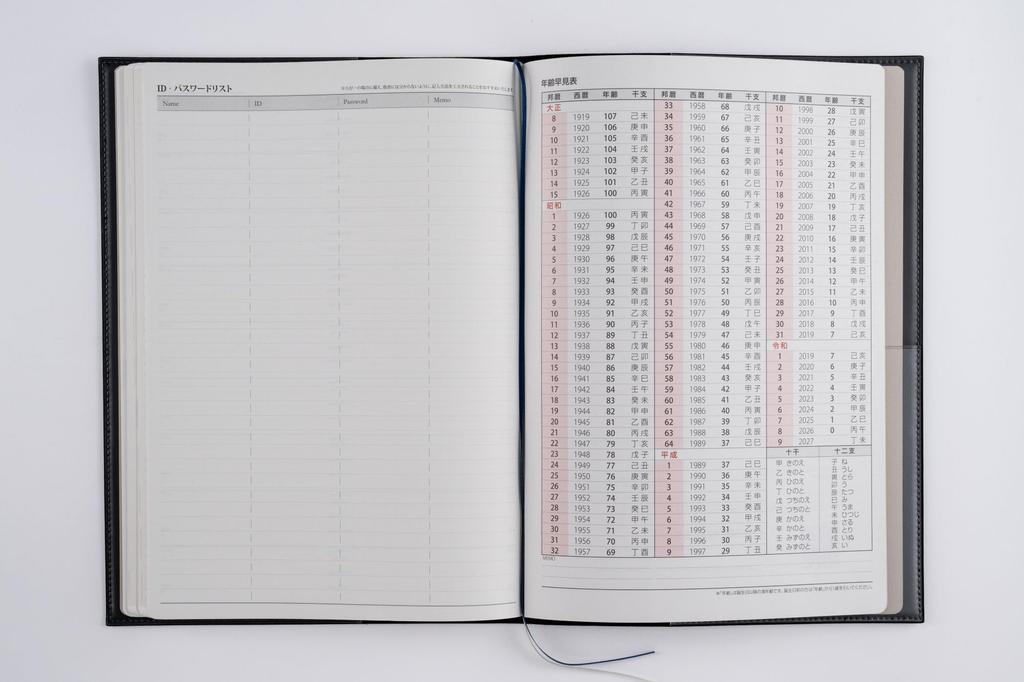 ID・パスワードリスト
Name ID Password Memo
年齢早見表
邦暦 西暦 年齢 干支
大正
8 1919 107 己未
9 1920 106 庚申
10 1921 105 辛酉
11 1922 104 壬戌
12 1923 103 癸亥
13 1924 102 甲子
14 1925 101 乙丑
15 1926 100 丙寅
昭和
1 1926 100 丙寅
2 1927 99 丁卯
3 1928 98 戊辰
4 1929 97 己巳
5 1930 96 庚午
6 1931 95 辛未
7 1932 94 壬申
8 1933 93 癸酉
9 1934 92 甲戌
10 1935 91 乙亥
11 1936 90 丙子
12 1937 89 丁丑
13 1938 88 戊寅
14 1939 87 己卯
15 1940 86 庚辰
16 1941 85 辛巳
17 1942 84 壬午
18 1943 83 癸未
19 1944 82 甲申
20 1945 81 乙酉
21 1946 80 丙戌
22 1947 79 丁亥
23 1948 78 戊子
24 1949 77 己丑
25 1950 76 庚寅
26 1951 75 辛卯
27 1952 74 壬辰
28 1953 73 癸巳
29 1954 72 甲午
30 1955 71 乙未
31 1956 70 丙申
32 1957 69 丁酉
邦暦 西暦 年齢 干支
33 1958 68 戊戌
34 1959 67 己亥
35 1960 66 庚子
36 1961 65 辛丑
37 1962 64 壬寅
38 1963 63 癸卯
39 1964 62 甲辰
40 1965 61 乙巳
41 1966 60 丙午
42 1967 59 丁未
43 1968 58 戊申
44 1969 57 己酉
45 1970 56 庚戌
46 1971 55 辛亥
47 1972 54 壬子
48 1973 53 癸丑
49 1974 52 甲寅
50 1975 51 乙卯
51 1976 50 丙辰
52 1977 49 丁巳
53 1978 48 戊午
54 1979 47 己未
55 1980 46 庚申
56 1981 45 辛酉
57 1982 44 壬戌
58 1983 43 癸亥
59 1984 42 甲子
60 1985 41 乙丑
61 1986 40 丙寅
62 1987 39 丁卯
63 1988 38 戊辰
64 1989 37 己巳
平成
1 1989 37 己巳
2 1990 36 庚午
3 1991 35 辛未
4 1992 34 壬申
5 1993 33 癸酉
6 1994 32 甲戌
7 1995 31 乙亥
8 1996 30 丙子
9 1997 29 丁丑
邦暦 西暦 年齢 干支
10 1998 28 戊寅
11 1999 27 己卯
12 2000 26 庚辰
13 2001 25 辛巳
14 2002 24 壬午
15 2003 23 癸未
16 2004 22 甲申
17 2005 21 乙酉
18 2006 20 丙戌
19 2007 19 丁亥
20 2008 18 戊子
21 2009 17 己丑
22 2010 16 庚寅
23 2011 15 辛卯
24 2012 14 壬辰
25 2013 13 癸巳
26 2014 12 甲午
27 2015 11 乙未
28 2016 10 丙申
29 2017 9 丁酉
30 2018 8 戊戌
31 2019 7 己亥
令和
1 2019 7 己亥
2 2020 6 庚子
3 2021 5 辛丑
4 2022 4 壬寅
5 2023 3 癸卯
6 2024 2 甲辰
7 2025 1 乙巳
8 2026 0 丙午
9 2027 丁未
十干
甲 きのえ
乙 きのと
丙 ひのえ
丁 ひのと
戊 つちのえ
己 つちのと
庚 かのえ
辛 かのと
壬 みずのえ
癸 みずのと
十二支
子 ね
丑 うし
寅 とら
卯 う
辰 たつ
巳 み
午 うま
未 ひつじ
申 さる
酉 とり
戌 いぬ
亥 い
MEMO
※「年齢」は誕生日以降の満年齢です。誕生日前の方は「年齢」から1歳を引いてください。